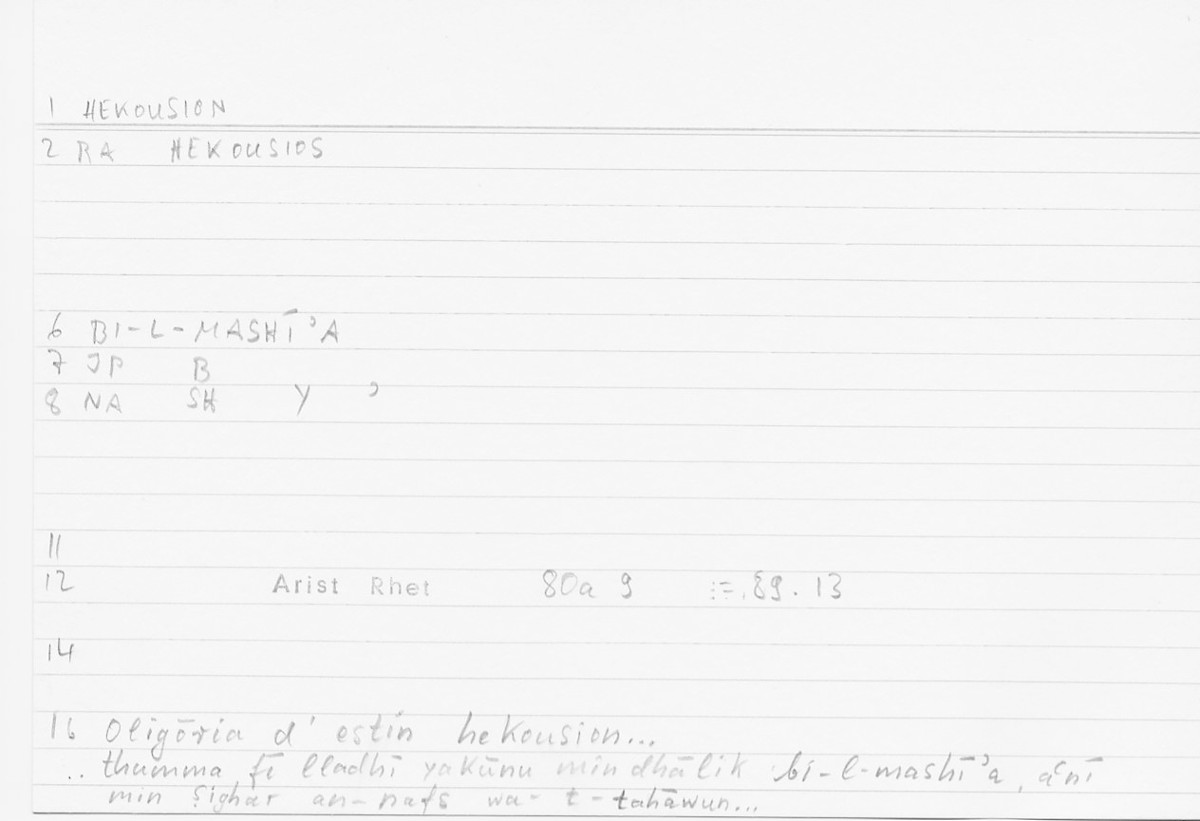 1 HEKOUSION
2 RA HEKOUSIOS
6 BI-L-MASHĪ'A
7 JP B
8 NA SH Y '
11
12 Arist Rhet 80a 9 := .89.13
14
16 Oligōria d' estin hekousion...
.. thumma fī lladhī yakūnu min dhālik bi-l-mashī'a, a'nī
min ṣighar an-nafs wa-t-tahāwun...